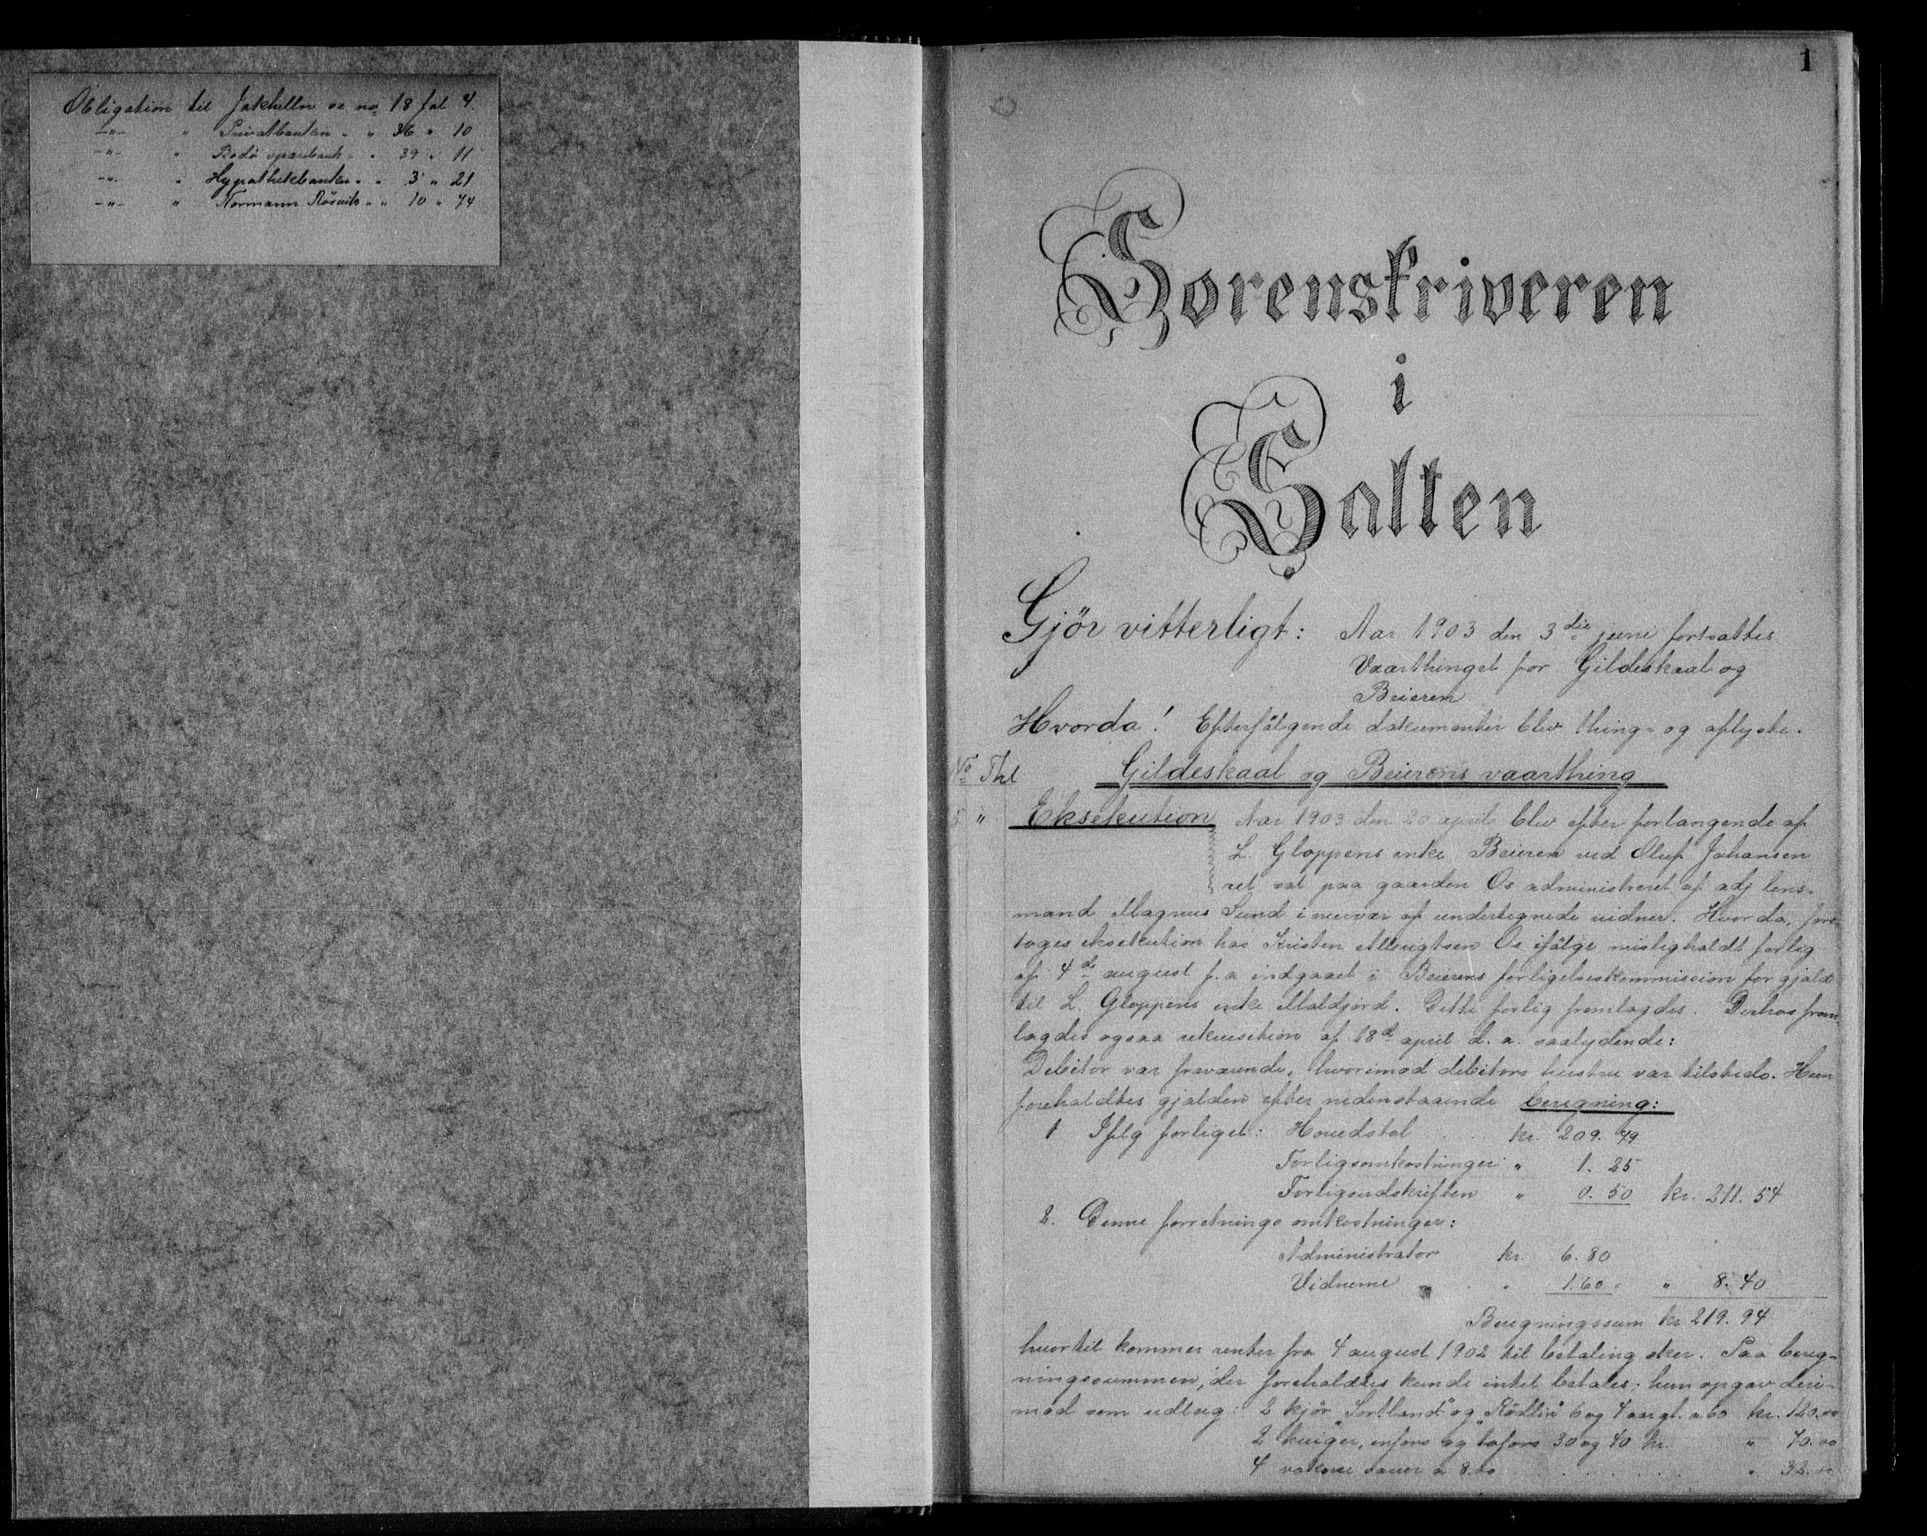 Obligation til Jakhelln se no 18 fol 4.
-"- " Privatbanken " " 36 " 10
-"- " Bodø sparebank " " 39 " 11
-"- " Hypothekbanken " " 3 " 21
-"- " Normann Røsvik " " 10 " 74
1
Sorenskriveren
i
Salten
Gjör vitterligt: Aar 1903 den 3die juni fortsattes
Vaarthinget for Gildeskaal og
Beieren
Hvorda! Efterfölgende dokumenter blev thing- og aflyste.
No Thl Gildeskaal og Beierens vaarthing
" Eksekution Aar 1903 den 20 april blev efter forlangende af
L. Gloppens enke Beieren ved Oluf Johansen
ret sat paa gaarden Os administreret af adj lens-
mand Magnus Sund i overvær af undertegnede vidner. Hvorda, fore-
toges eksekution hos Kristen Os ifölge misligholdt forlig
af 4de august f. a indgaaet i Beierens forligelseskommission for gjæld
til L. Gloppens enke Moldjord. Dette forlig fremlagdes. Derhos frem-
lagdes ogsaa rekvisition af 18d april d. a. saalydende:
Debitor var fraværende, hvorimod debitors hustru var tilstede. Hun
foreholdtes gjælden efter nedenstaaende beregning:
1 Iflg forliget: Hovedstol kr. 209. 79
Forligsomkostninger " 1. 25
Forligsudskriften " 0. 50 kr. 211. 54
2. Denne forretnings omkostninger:
Administrator kr. 6. 80
Vidnerne " 1.60 " 8. 40
Beregningssum kr 219. 94
hvortil kommer renter fra 4 august 1902 til betaling sker. Paa bereg-
ningssummen, der foreholdtes kunde intet betales; hun opgav deri-
mod som udlæg: 2 kjör "Sortland" og "Rödlin" 6 og 4 aar gl. a 60 kr. 120.00
2 kviger, enfors og tofors 30 og 40 kr. " 70.00
4 voksne sauer a 8.00 " 32.00